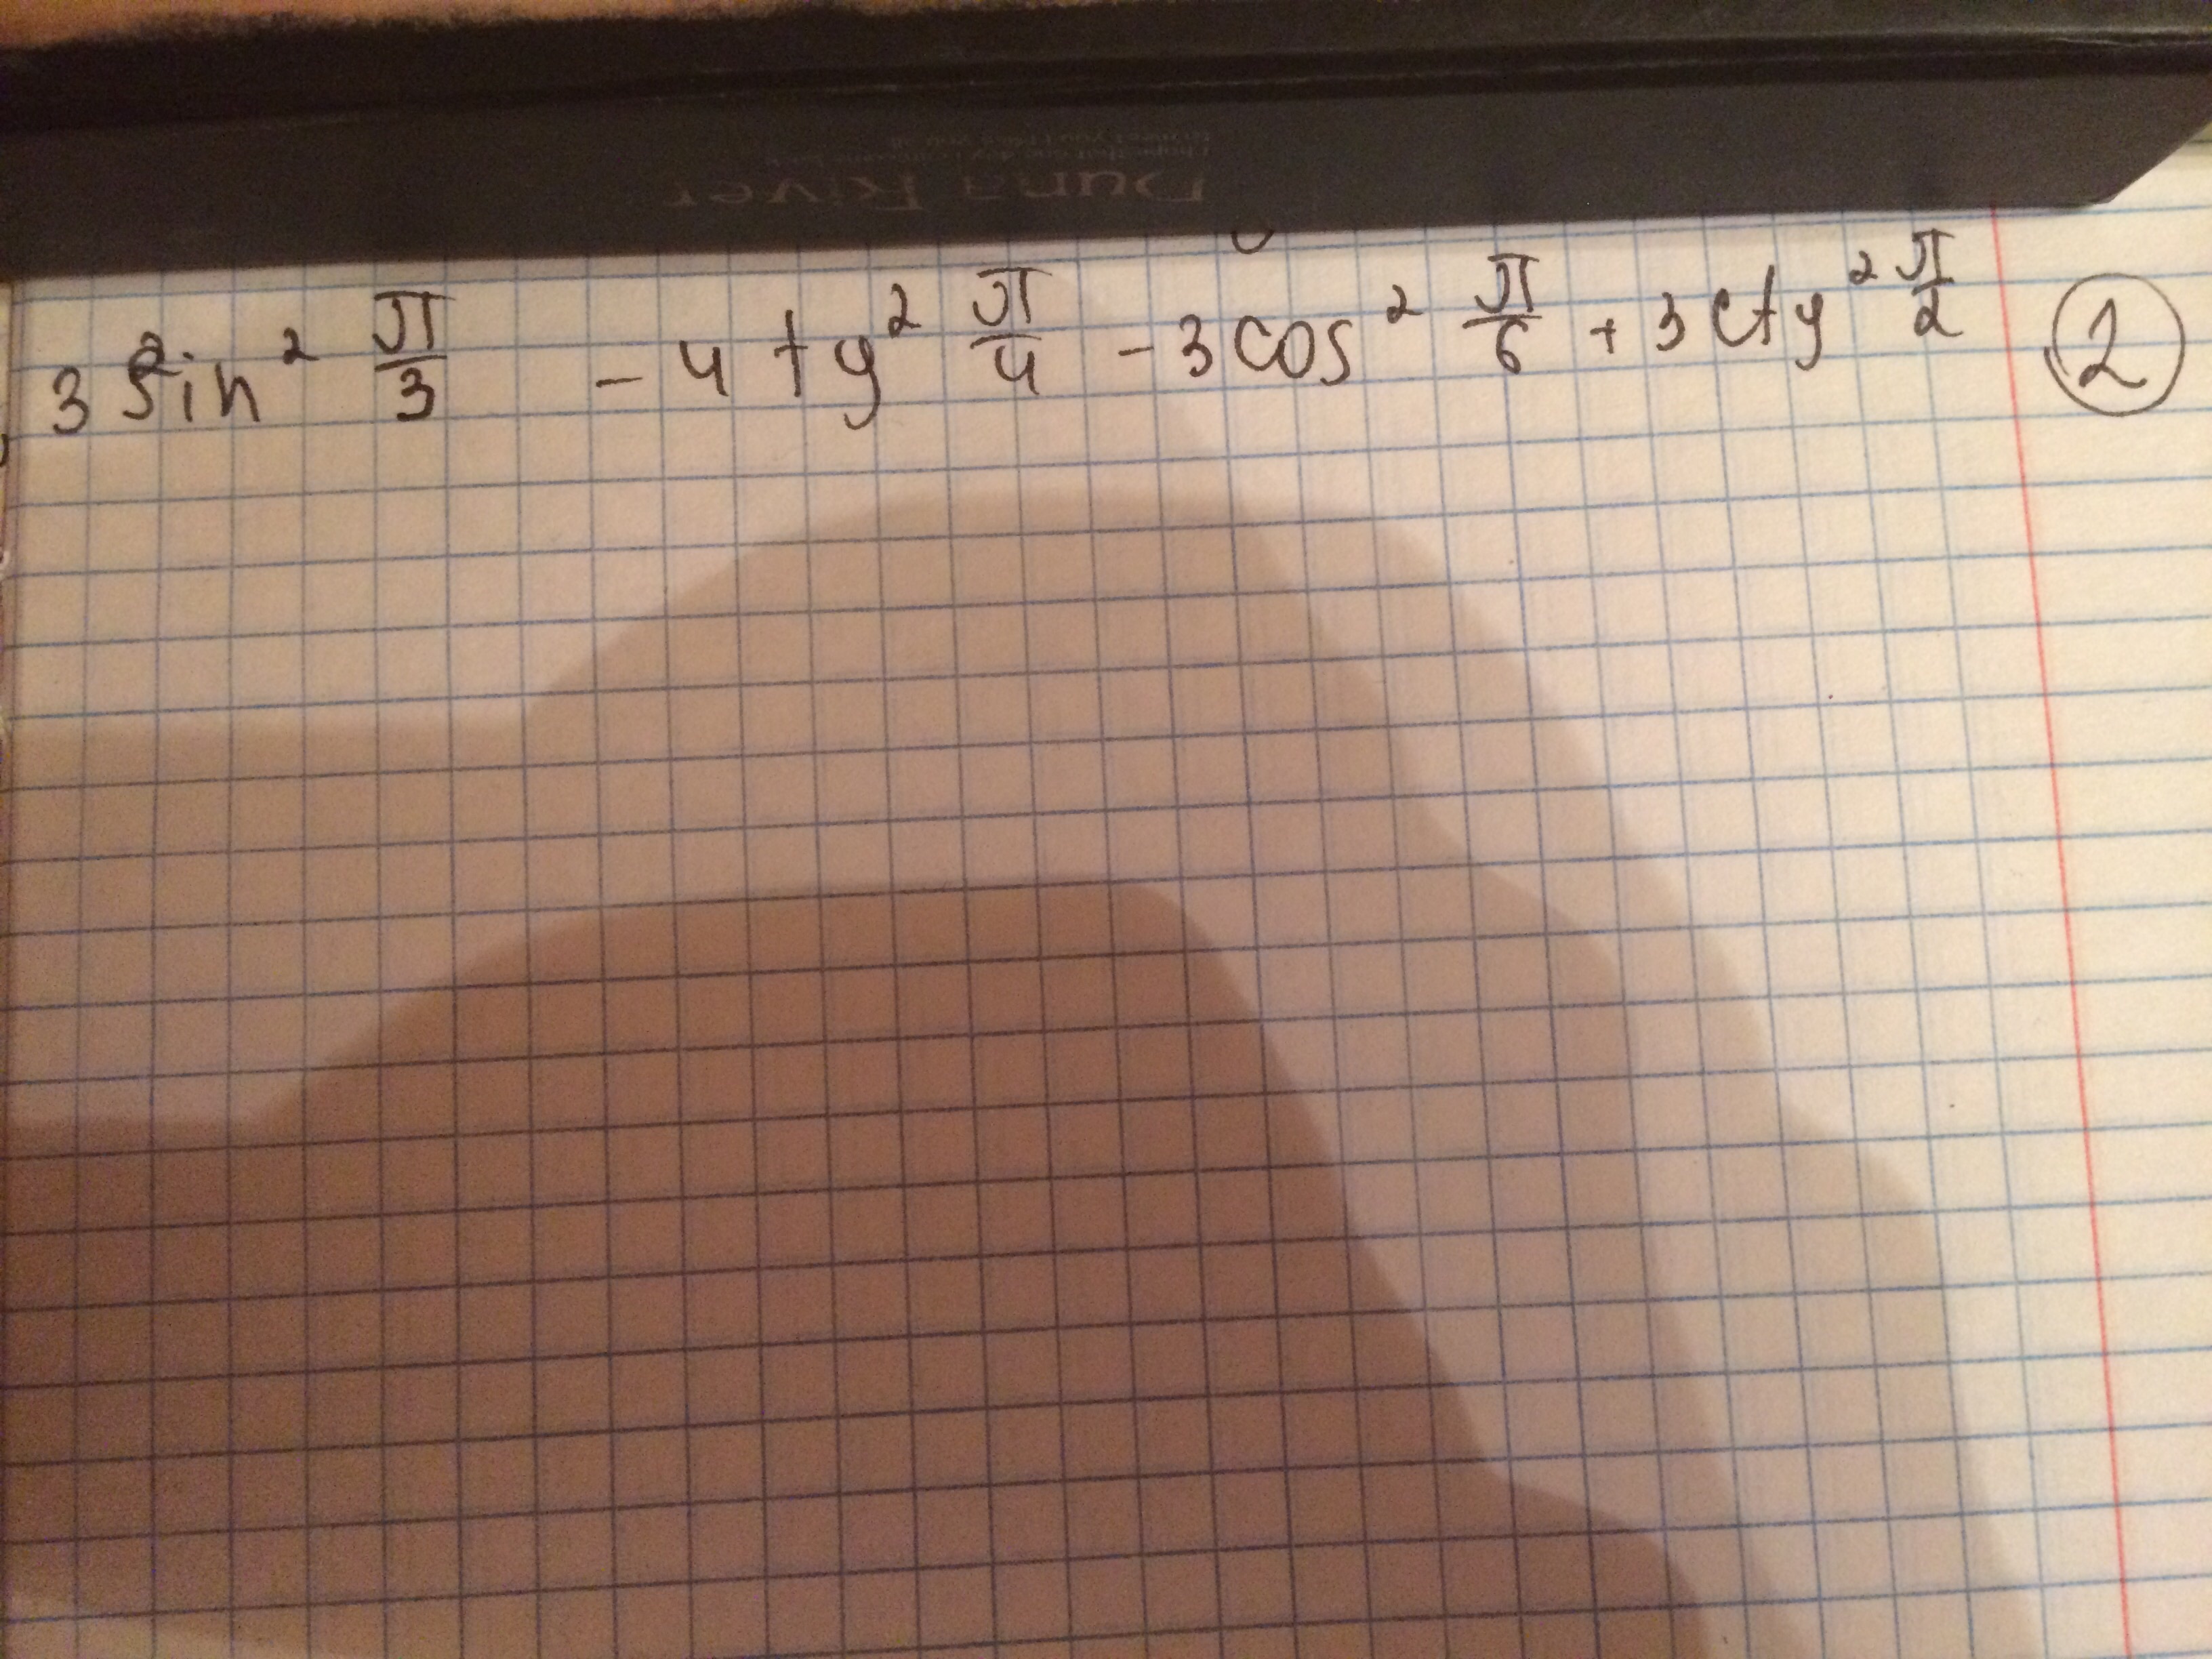 Duna River
3 sin² π/3 - 4 tg² π/4 - 3 cos² π/6 + 3 ctg² π/2 ②